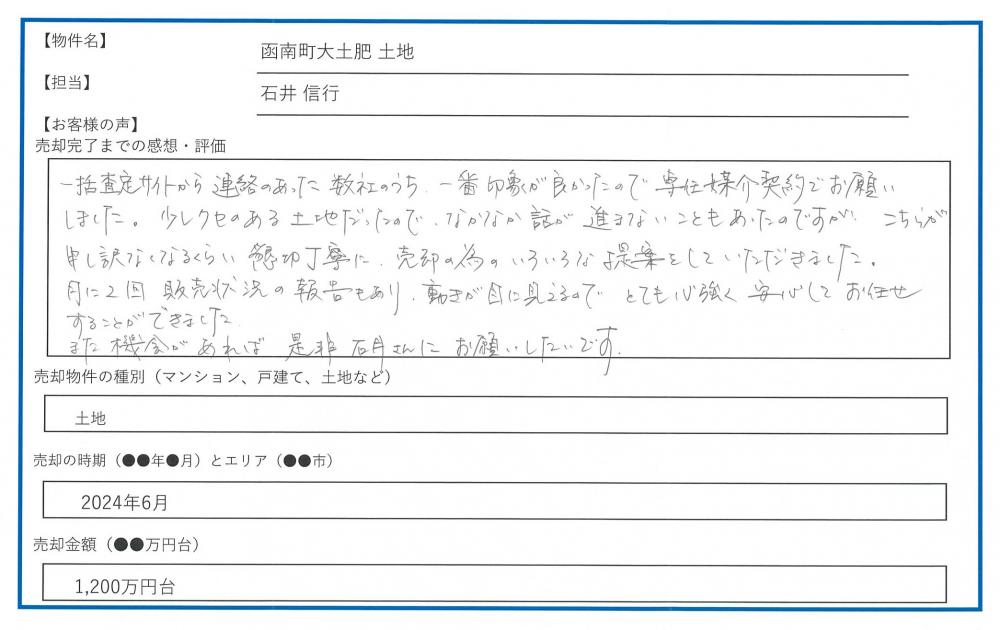 【物件名】
函南町大土肥 土地
【担当】
石井 信行
【お客様の声】
売却完了までの感想・評価
一括査定サイトから連絡のあった数社のうち、一番印象が良かったので専任媒介契約でお願い
しました。少しクセのある土地だったので、なかなか話が進まないこともあったのですが、こちらが
申し訳なくなるくらい懇切丁寧に、売却の為のいろいろな提案をしていただきました。
月に2回 販売状況の報告もあり、動きが目に見えるので とても心強く 安心して お任せ
することができました。
また機会があれば 是非 石井さんに お願いしたいです。
売却物件の種別（マンション、戸建て、土地など）
土地
売却の時期（●●年●月）とエリア（●●市）
2024年6月
売却金額（●●万円台）
1,200万円台